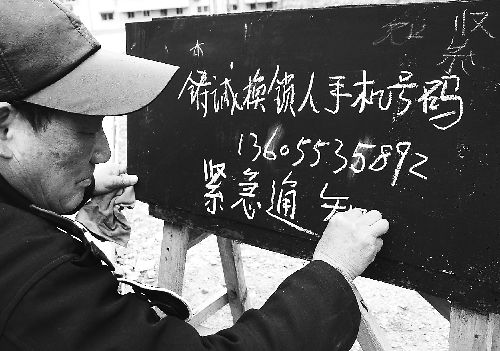 铸诚换锁人手机号码
13605535892
紧急通知